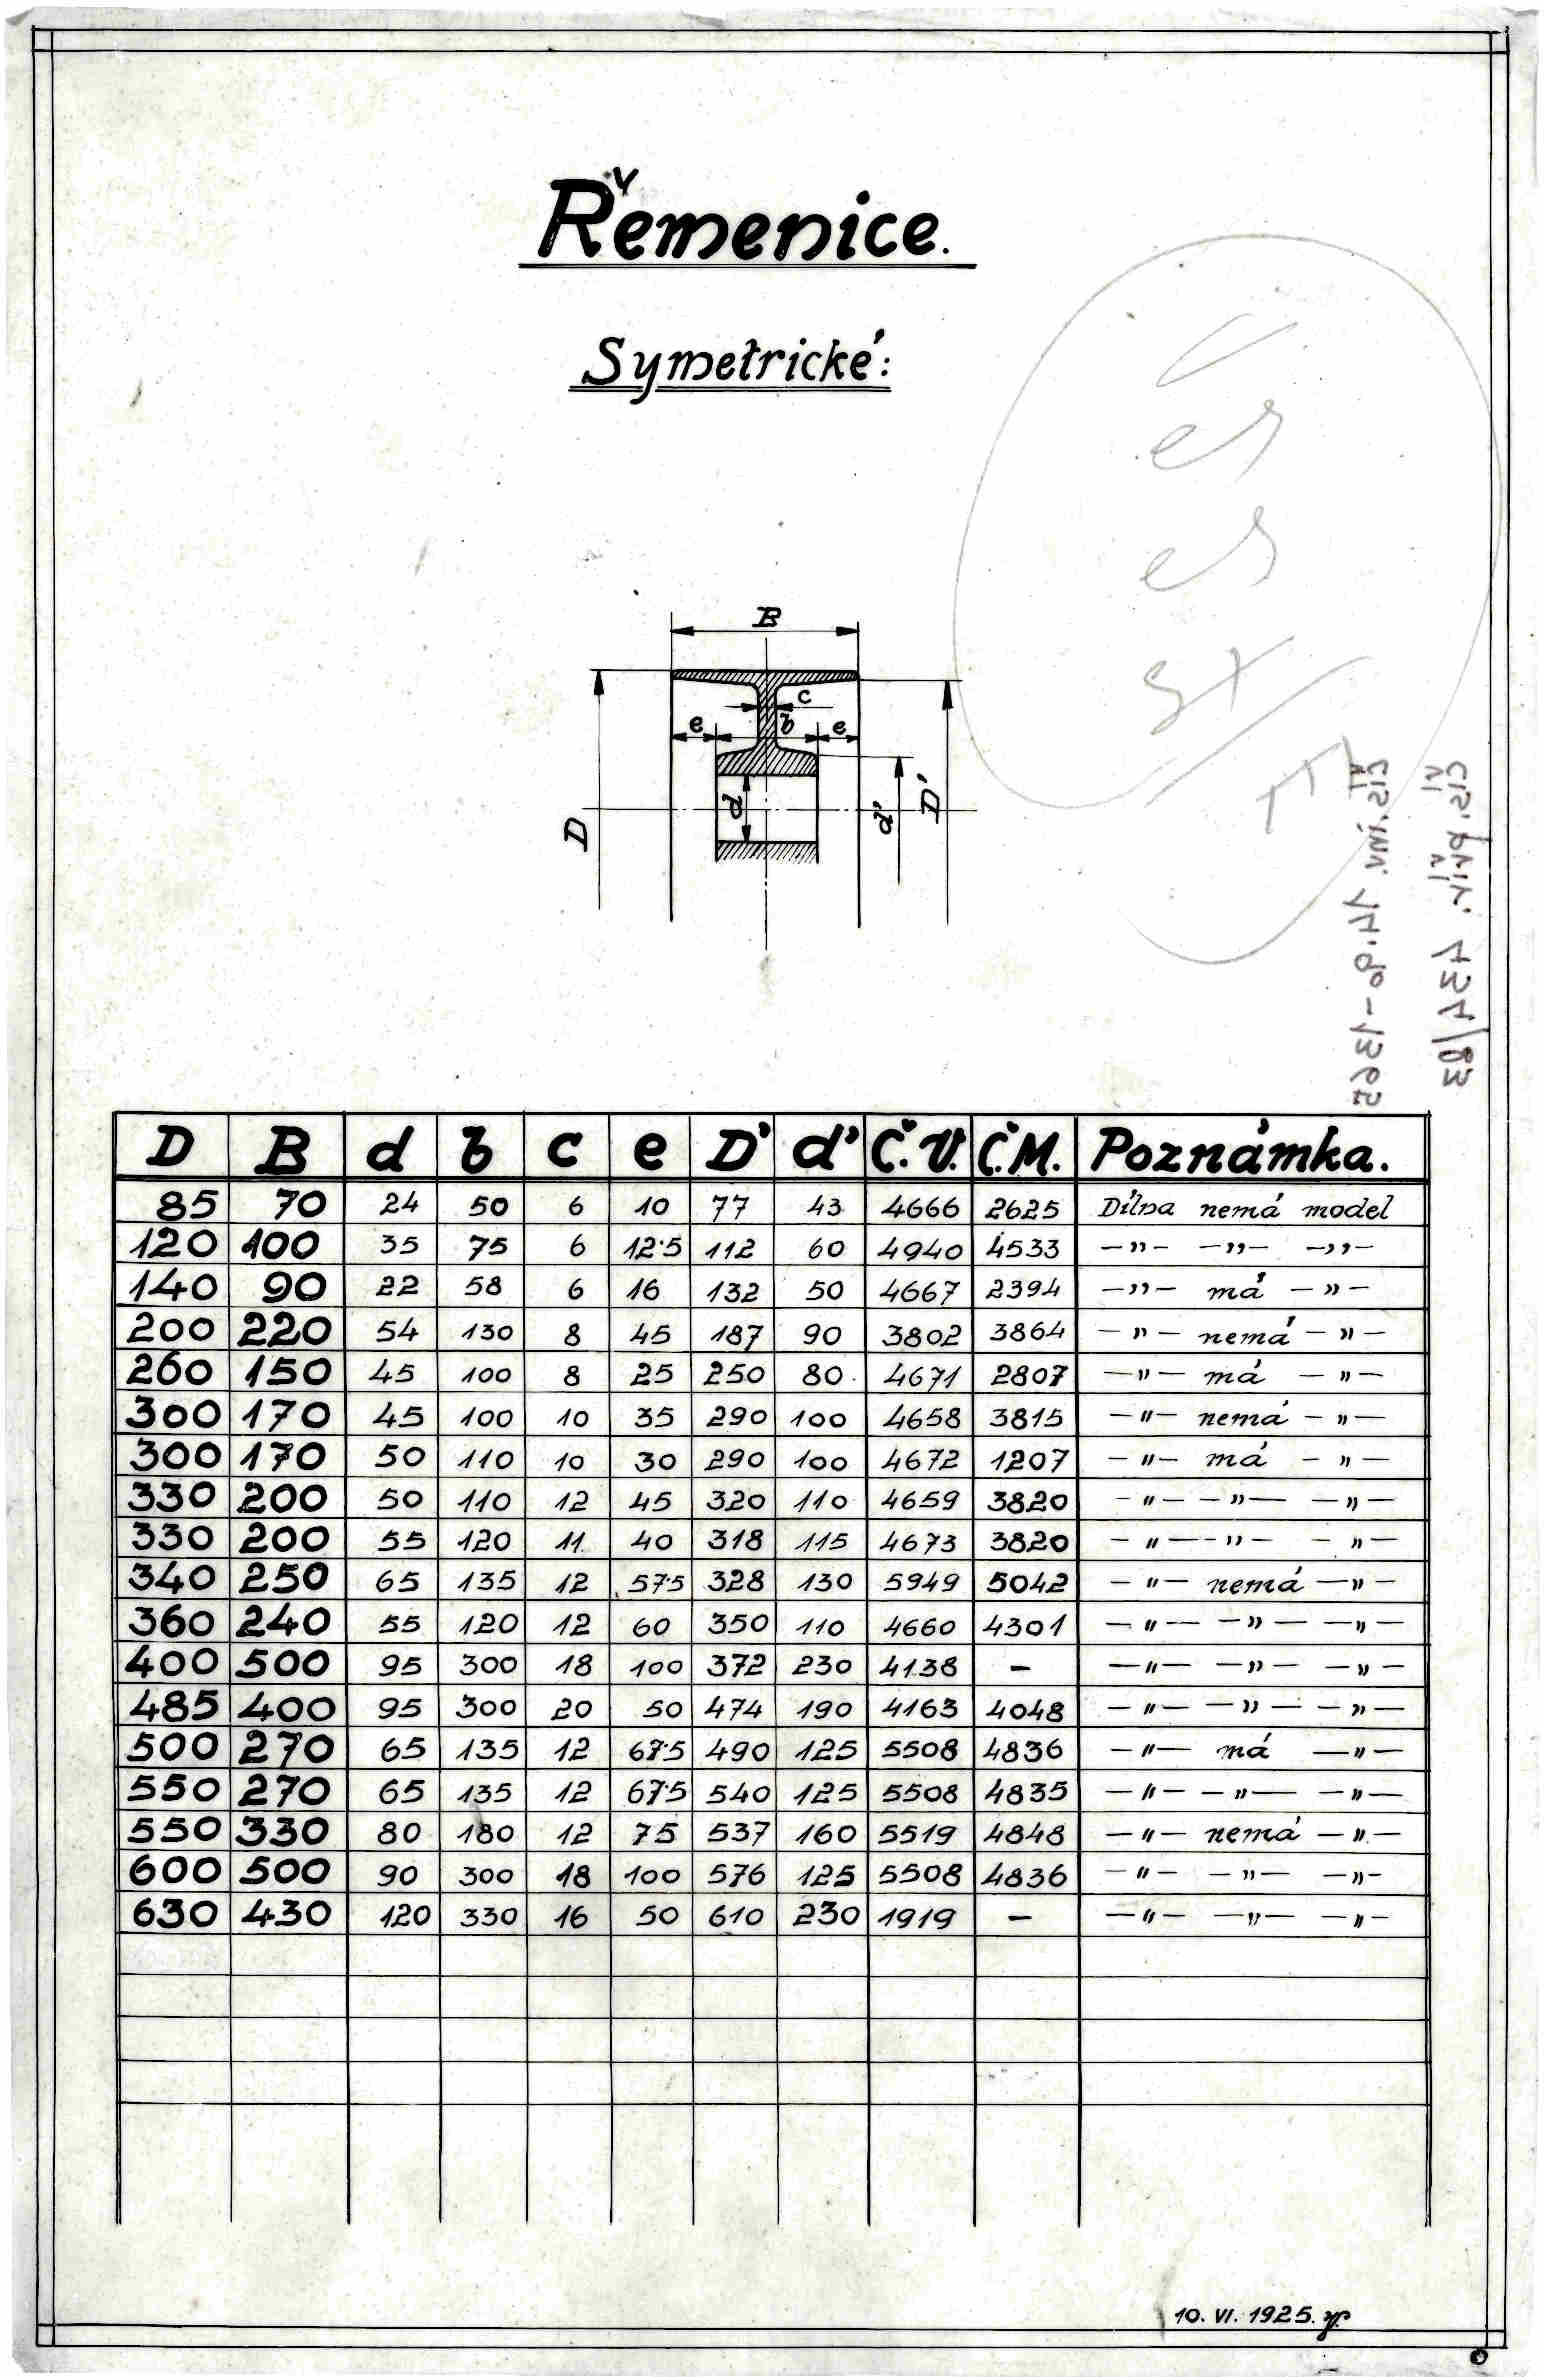 Řemenice.
Symetrické:
B
c
e b e
d
D d' D'
D B d b c e D' d' Č.V. Č.M. Poznámka.
85 70 24 50 6 10 77 43 4666 2625 Dílna nemá model
120 100 35 75 6 12·5 112 60 4940 4533 —„— —„— —„—
140 90 22 58 6 16 132 50 4667 2394 —„— má —„—
200 220 54 130 8 45 187 90 3802 3864 —„— nemá —„—
260 150 45 100 8 25 250 80 4671 2807 —„— má —„—
300 170 45 100 10 35 290 100 4658 3815 —„— nemá —„—
300 170 50 110 10 30 290 100 4672 1207 —„— má —„—
330 200 50 110 12 45 320 110 4659 3820 —„— —„— —„—
330 200 55 120 11 40 318 115 4673 3820 —„— —„— —„—
340 250 65 135 12 57·5 328 130 5949 5042 —„— nemá —„—
360 240 55 120 12 60 350 110 4660 4301 —„— —„— —„—
400 500 95 300 18 100 372 230 4138 — —„— —„— —„—
485 400 95 300 20 50 474 190 4163 4048 —„— —„— —„—
500 270 65 135 12 67·5 490 125 5508 4836 —„— má —„—
550 270 65 135 12 67·5 540 125 5508 4835 —„— —„— —„—
550 330 80 180 12 75 537 160 5519 4848 —„— nemá —„—
600 500 90 300 18 100 576 125 5508 4836 —„— —„— —„—
630 430 120 330 16 50 610 230 1919 — —„— —„— —„—
10. VI. 1925.